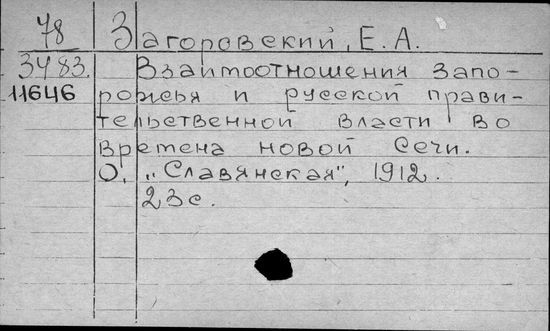 78 Загоровский, Е. А.
3483. Взаимоотношения Запо-
11646 рожья и русской прави-
тельственной власти во
времена новой Сечи.
О. „Славянская", 1912.
23с.